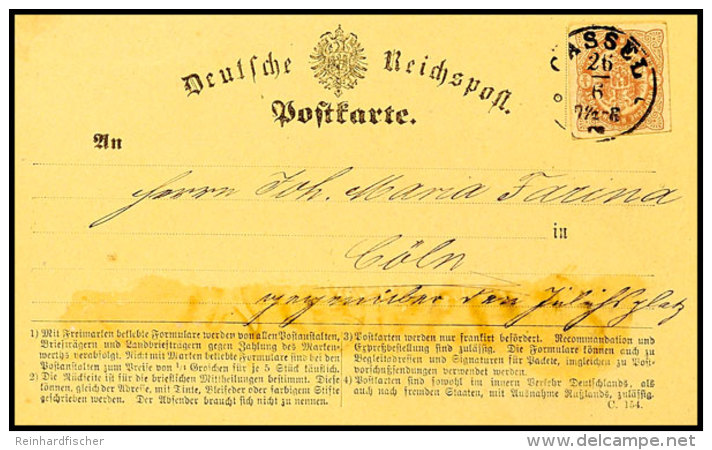 Deutsche Reichspost.
Postkarte.
CASSEL
26
6
An
Herrn Joh. Maria Farina
in
Cöln
gegenüber dem Jülichsplatz
1) Mit Freimarken beklebte Formulare werden von allen Postanstalten,
Briefträgern und Landbriefträgern gegen Zahlung des Marken-
werths verabfolgt. Nicht mit Marken beklebte Formulare sind bei den
Postanstalten zum Preise von Groschen für je 5 Stück käuflich.
2) Die Rückseite ist für die brieflichen Mittheilungen bestimmt. Diese
können, gleich der Adresse, mit Tinte, Bleifeder oder farbigem Stifte
geschrieben werden. Der Absender braucht sich nicht zu nennen.
3) Postkarten werden nur frankirt befördert. Recommandation und
Expreßbestellung sind zulässig. Die Formulare können auch zu
Begleitadressen und Signaturen für Packete, imgleichen zu Post-
vorschußsendungen verwendet werden.
4) Postkarten sind sowohl im innern Verkehr Deutschlands, als
auch nach fremden Staaten, mit Ausnahme Rußlands, zulässig.
C. 154.
Reinhardfischer
www.delcampe.net